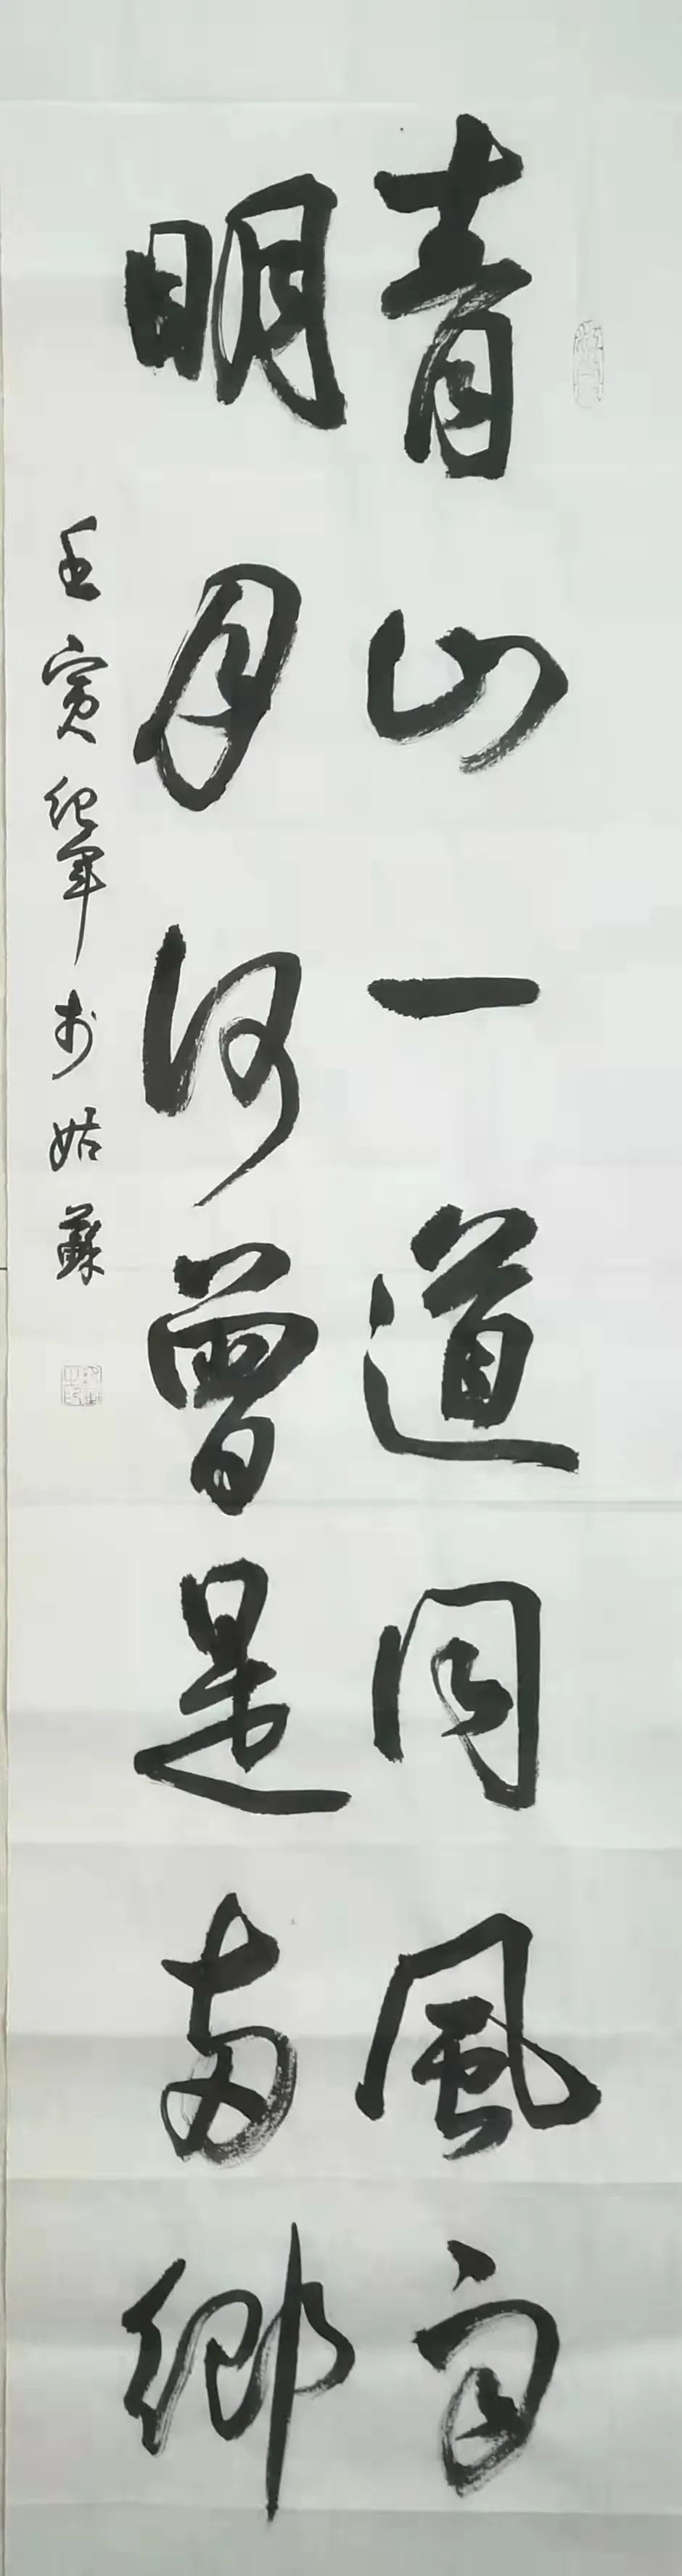 青山一道同風雨
明月何曾是兩鄉
壬寅紀軍於姑蘇